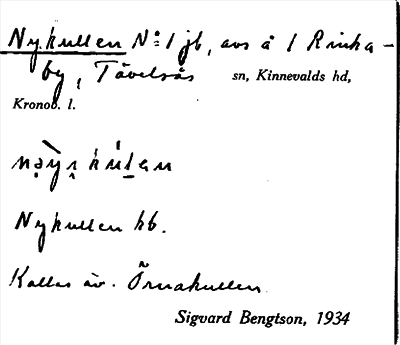 Nykullen No 1 jb, avs å 1 Rinka-
by, Tävelsås sn, Kinnevalds hd,
Kronob. l.
Nykullen kb.
Kallas äv. Örnakullen
Sigvard Bengtson, 1934